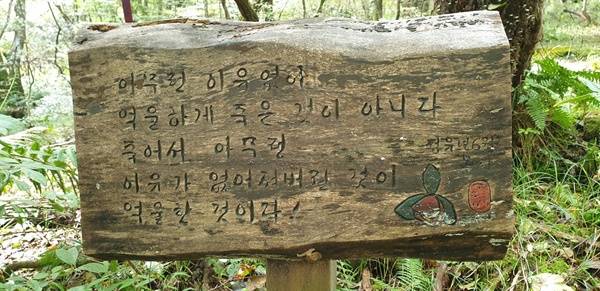 아무런 이유없이
억울하게 죽은 것이 아니다
죽어서 아무런
이유가 없어져버린 것이
억울한 것이다!